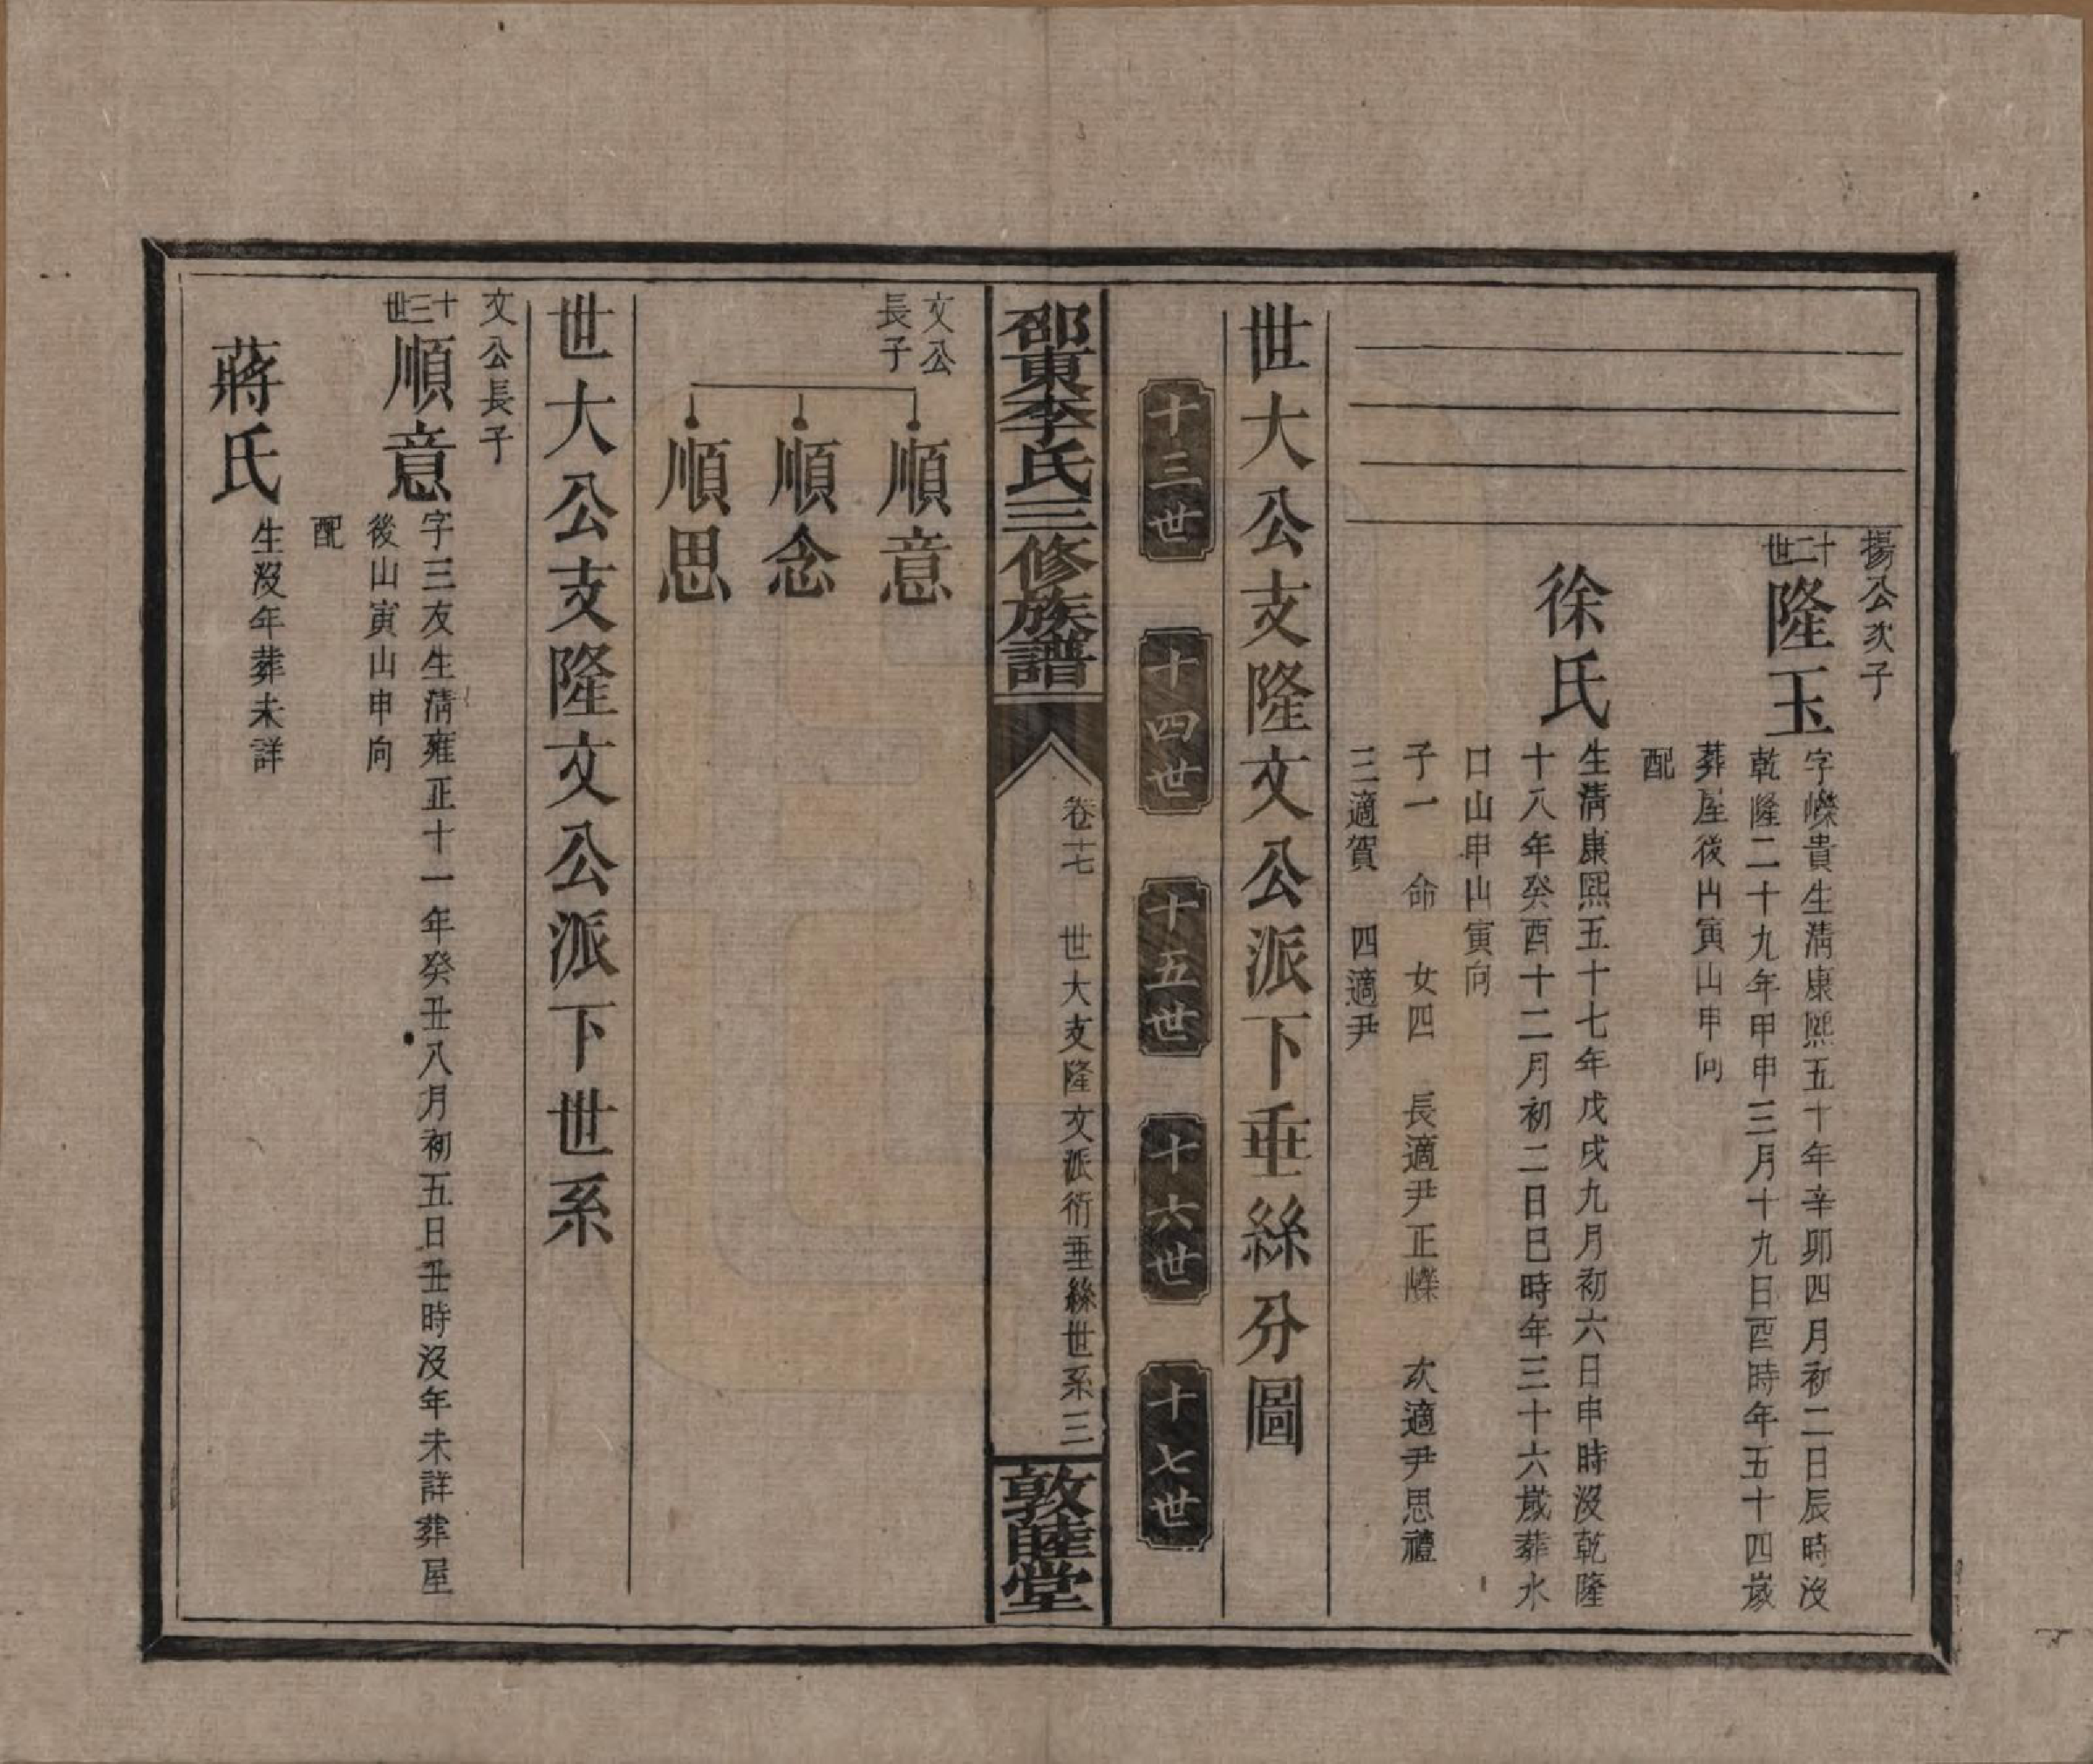 揚公次子
十二世
隆玉
字嶸貴生淸康熙五十年辛卯四月初二日辰時沒
乾隆二十九年甲申三月十九日酉時年五十四歲
葬屋後山寅山申向
配
徐氏
生淸康熙五十七年戊戌九月初六日申時沒乾隆
十八年癸酉十二月初二日巳時年三十六歲葬水
口山申山寅向
子一　命　女四　長適尹正嶸　次適尹思禮
三適賀　四適尹
世大公支隆文公派下垂絲分圖
十三世　十四世　十五世　十六世　十七世
邵東李氏三修族譜
卷十七　世大支隆文派衍垂絲世系　三
敦睦堂
文公
長子
順意
順念
順思
世大公支隆文公派下世系
文公長子
十三世
順意
字三友生淸雍正十一年癸丑八月初五日丑時沒年未詳葬屋
後山寅山申向
配
蔣氏
生沒年葬未詳